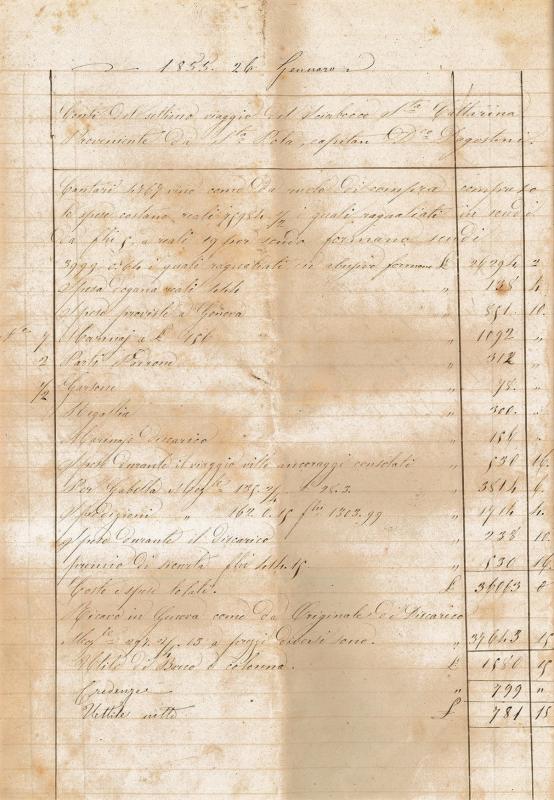 1855. 26 Gennaro
Conti del settimo viaggio del Sta Cattarina
Proveniente da Sta Pola, capitan Dco Dagostini.
Cantari 4367 vino come da di compra compreso
le spese costano reali i quali ragualiati in scudi
da flni 5. a reali 19 per scudo formano scudi
3999. c. 64 i quali ragualiati in abusivo formano £ 26294 2
Spesa dogana reali 138 4
Spese proviste a Genova " 851 10
7 Marinaj a £ 156 " 1092 "
2 Parti Padrone " 312 "
1/2 Garzone " 78 "
Regallia " 300 "
Marinaj discarico " 156 "
Spese durante il viaggio visite ancoraggi consolati " 530 16
Per Gabella 28.3. " 3814 6
Spedizioni " 162.0.15 flni 1303.99 " 1704 4
Spese durante il discarico " 238 10
premio di sicurtà flni 15 " 530 16
Costo e spese totali. £ 36063
Ricavo in Genova come da Originale di Discarico
291. 13 a prezzi diversi sono. " 37643 15
Utile di Banco e colonna. £ 1580 15
Credenze " 799 "
Uttile netto £ 781 15